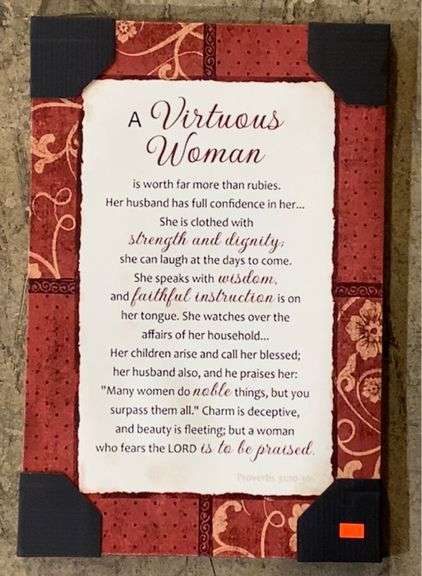 A Virtuous
Woman
is worth far more than rubies.
Her husband has full confidence in her...
She is clothed with
strength and dignity;
she can laugh at the days to come.
She speaks with wisdom,
and faithful instruction is on
her tongue. She watches over the
affairs of her household...
Her children arise and call her blessed;
her husband also, and he praises her:
"Many women do noble things, but you
surpass them all." Charm is deceptive,
and beauty is fleeting; but a woman
who fears the LORD is to be praised.
Proverbs